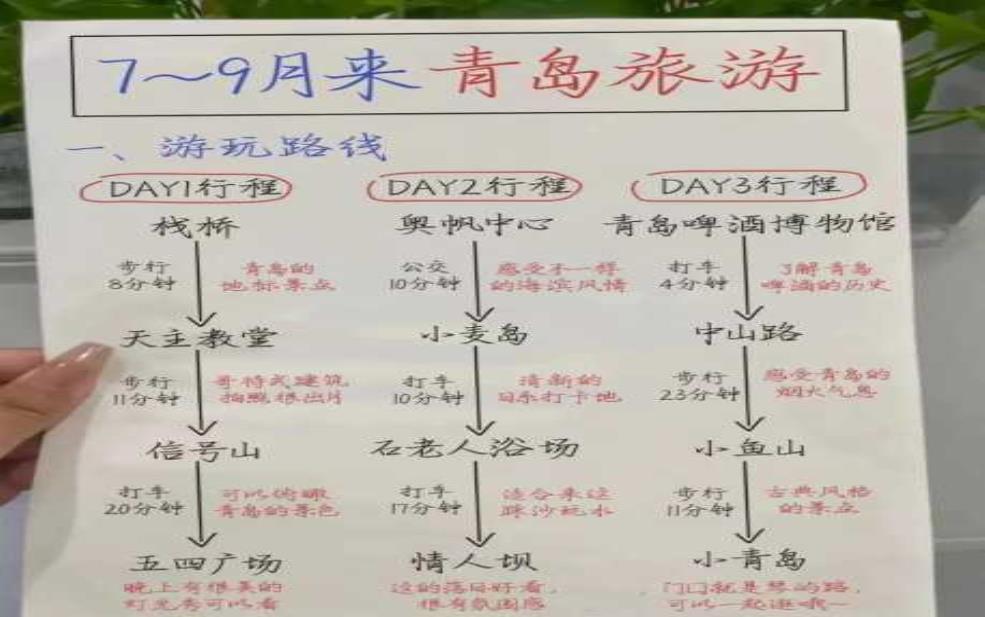 7~9月来 青岛旅游
一、游玩路线
DAY1行程
栈桥
步行
8分钟
青岛的
地标景点
天主教堂
步行
11分钟
哥特式建筑
拍照很出片
信号山
打车
20分钟
可以俯瞰
青岛的景色
五四广场
晚上有很美的
灯光秀可以看
DAY2行程
奥帆中心
公交
10分钟
感受不一样
的海滨风情
小麦岛
打车
10分钟
清新的
日系打卡地
石老人浴场
打车
17分钟
适合来这
踩沙玩水
情人坝
这的落日好看,
很有氛围感
DAY3行程
青岛啤酒博物馆
打车
4分钟
了解青岛
啤酒的历史
中山路
步行
23分钟
感受青岛的
烟火气息
小鱼山
步行
11分钟
古典风格
的景点
小青岛
门口就是琴屿路,
可以一起逛哦~